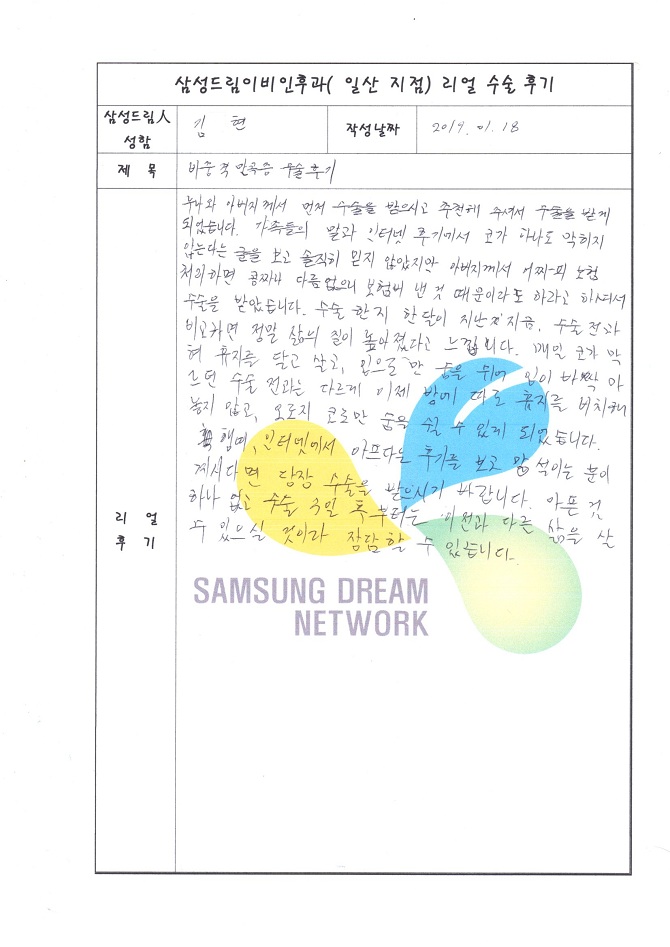 삼성드림이비인후과( 일산 지점) 리얼 수술 후기
삼성드림人 성함
김 현
작성날짜
2019. 01. 18
제 목
비중격만곡증 수술후기
리 얼 후 기
누나와 아버지께서 먼저 수술을 받으시고 추천해 주셔서 수술을 받게
되었습니다. 가족들의 말과 인터넷 후기에서 코가 하나도 막히지
않는다는 글을 보고 솔직히 믿지 않았지만 아버지께서 어짜피 보험
처리하면 공짜나 다름없으니 보험비 낸 것 때문이라도 하라고 하셔서
수술을 받았습니다. 수술 한지 한달이 지난 지금, 수술 전과
비교하면 정말 삶의 질이 높아졌다고 느낍니다. 매일 코가 막
혀 휴지를 달고 살고, 입으로만 숨을 쉬어 입이 바짝 마
르던 수술 전과는 다르게 이제 방에 따로 휴지를 비치해
놓지 않고, 오로지 코로만 숨을 쉴 수 있게 되었습니다.
혹 겁메, 인터넷에서 아프다는 후기를 보고 망설이는 분이
계시다면 당장 수술을 받으시기 바랍니다. 아픈 것
하나 없고 수술 3일 후부터는 이전과 다른 삶을 살
수 있으실 것이라 장담할 수 있습니다.
SAMSUNG DREAM
NETWORK